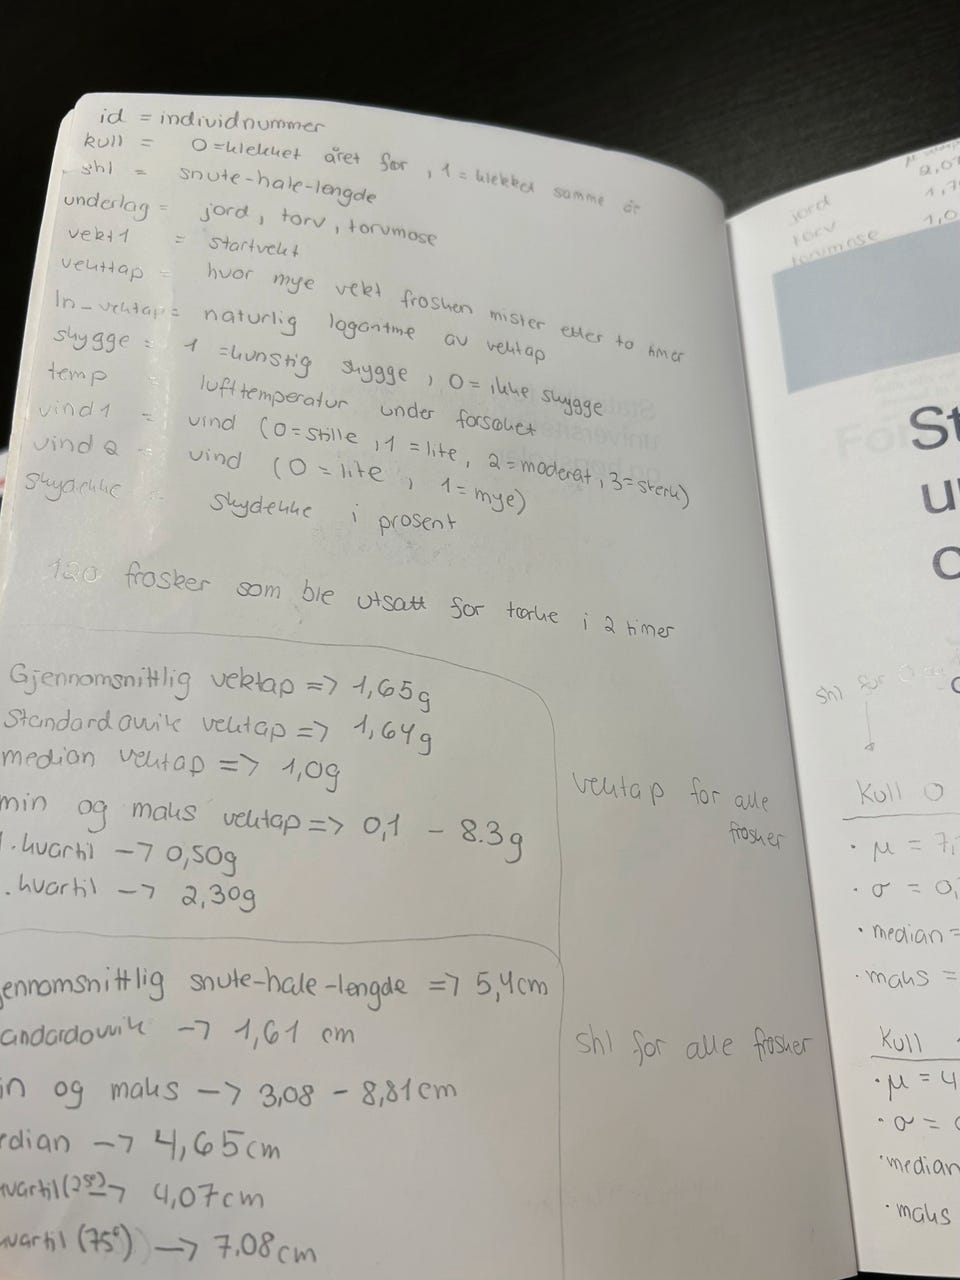 id = individnummer
kull = 0=klekket året før, 1=klekket samme år
shl = snute-hale-lengde
underlag = jord, torv, torvmose
vekt1 = startvekt
vekttap = hvor mye vekt frosken mister etter to timer
ln_vekttap = naturlig logaritme av vekttap
skygge = 1=kunstig skygge, 0=ikke skygge
temp = lufttemperatur under forsøket
vind1 = vind (0=stille, 1=lite, 2=moderat, 3=sterk)
vind2 = vind (0=lite, 1=mye)
skydekke = skydekke i prosent
120 frosker som ble utsatt for tørke i 2 timer
Gjennomsnittlig vektap => 1,65g
Standardavvik vektap => 1,64g
median vektap => 1,0g
min og maks vektap => 0,1 - 8.3g
.kvartil -> 0,50g
.kvartil -> 2,30g
vektap for alle
frosker
ennomsnittlig snute-hale-lengde => 5,4cm
andardavvik -> 1,61 cm
in og maks -> 3,08 - 8,81cm
edian -> 4,65cm
vartil (25%) -> 4,07cm
vartil (75%) -> 7,08cm
shl for alle frosker
jord 2,0
torv 1,7
torvmose 1,0
St
u
o
shl for 0
Kull 0
• μ = 7,
• σ = 0,
• median =
• maks =
Kull
• μ = 4
• σ =
• median
• maks